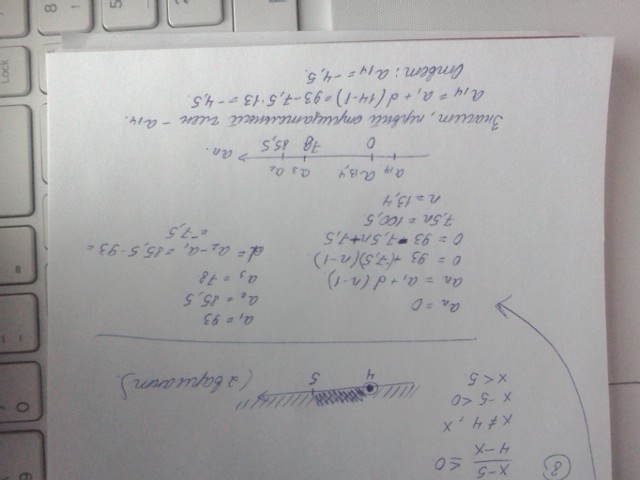 8
x-5/4-x ≤ 0
x ≠ 4, x
x-5<0
x < 5
4 5
(2 вариант)
a₁ = 93
a₂ = 85,5
a₃ = 78
d = a₂ - a₁ = 85,5-93 =
= -7,5
aₙ = 0
aₙ = a₁ + d (n-1)
0 = 93 + (-7,5)(n-1)
0 = 93 - 7,5n + 7,5
7,5n = 100,5
n = 13,4
a₁₄ a₁₃,₄ a₃ a₂
0 78 85,5 aₙ.
Значит, первый отрицательный член - a₁₄.
a₁₄ = a₁ + d (14-1) = 93-7,5·13 = -4,5
Ответ: a₁₄ = -4,5.
Lock
8
9
0